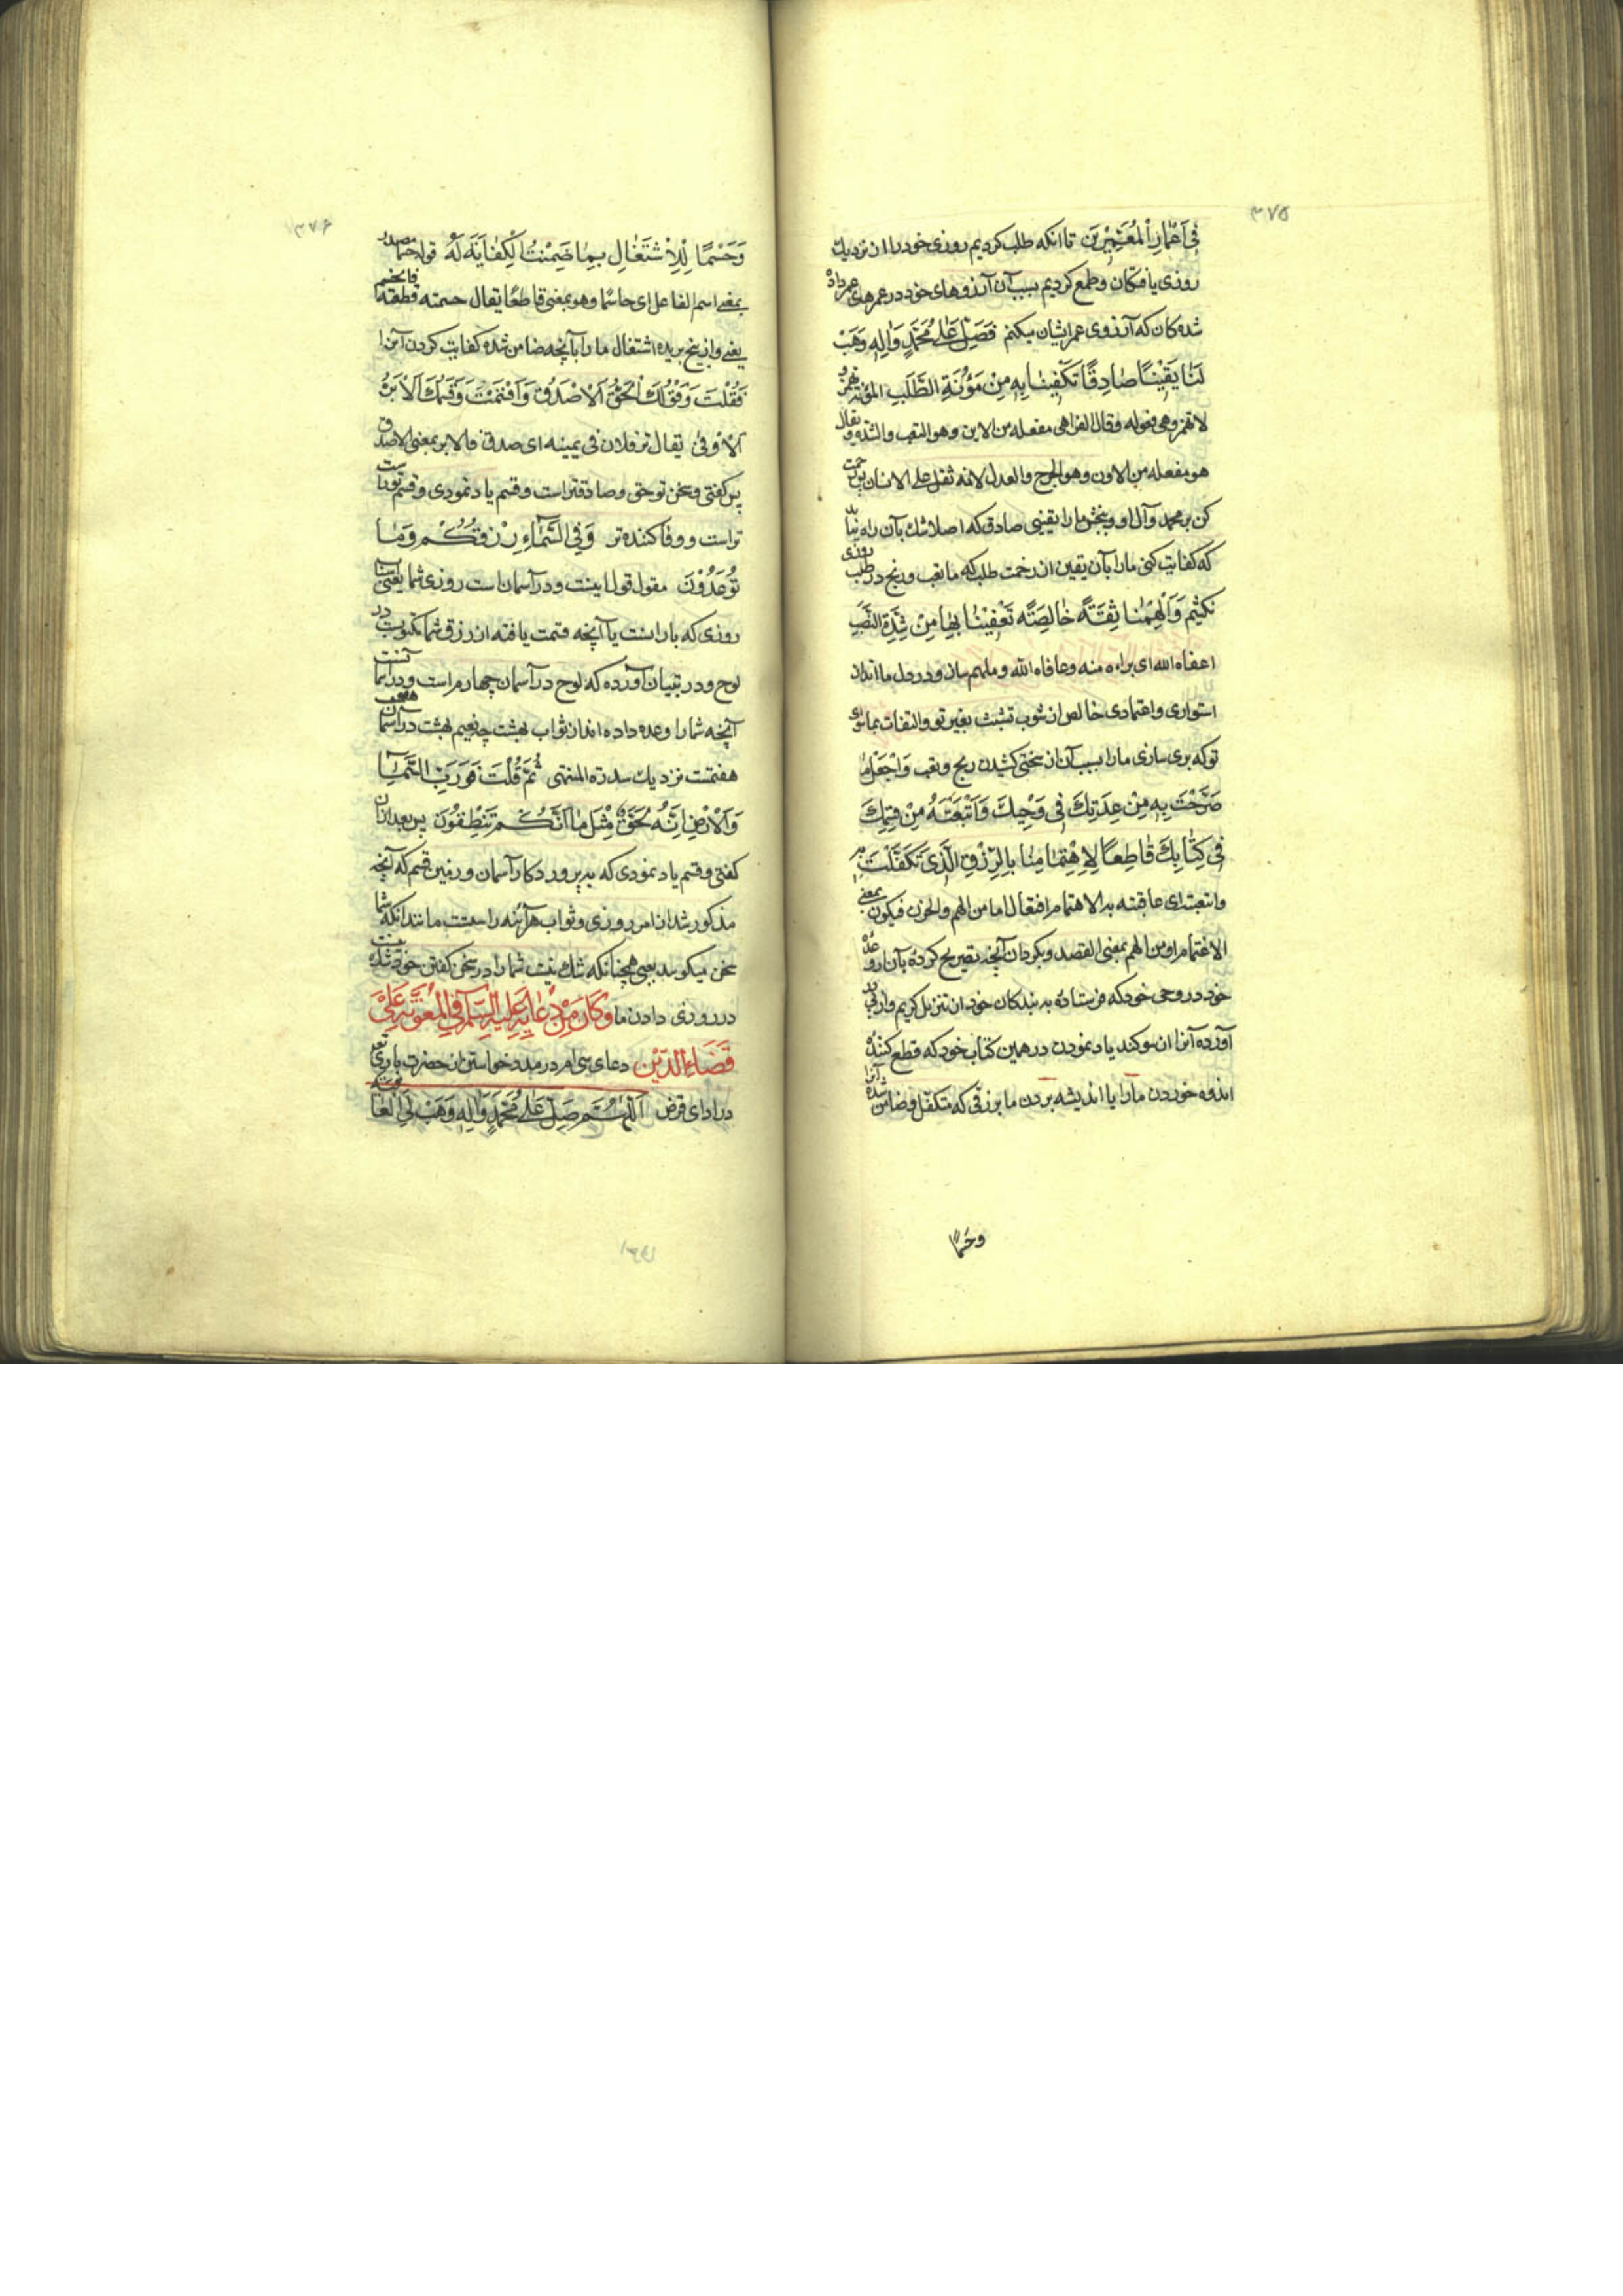 ۳۷۵
فِي أَعْمَارِ الْمُعَمَّرِينَ تا آنکه طلب کردیم روزی خود را از نزدیک
روزی یافتکان و طمع کردیم بسبب آن آرزوهای خود در عمرهای عمر داده
شده کان که آرزوی عمر ایشان میکنم فَصَلِّ عَلَى مُحَمَّدٍ وَآلِهِ وَهَبْ
لَنَا يَقِينًا صَادِقًا تَكْفِينَا بِهِ مِنْ مَؤُنَةِ الطَّلَبِ المؤنة تهمز و
لا تهمز وهی فعوله وقال الفرا هی مفعله من الاین وهو التعب والشده ویقال
هو مفعله من الاون وهو الخرج والعدل لانه ثقل علی الانسان پس رحمت
کن بر محمد وآل او وببخش ما را یقینی صادق که اصلا شک بآن راه نیابد
که کفایت کنی ما را بآن یقین از زحمت طلب که ما تعب ورنج در طلب روزی
نکشیم وَأَلْهِمْنَا ثِقَةً خَالِصَةً تُعْفِينَا بِهَا مِنْ شِدَّةِ النَّصَبِ
اعفاه الله ای براه منه وعافاه الله وملهم ساز ودر دل ما انداز
استواری واعتمادی خالص از شوب تشبث بغیر تو والتفات بماسوای
تو که بری سازی ما را بسبب آن از سختی کشیدن رنج وتعب وَاجْعَلْ مَا
صَرَّحْتَ بِهِ مِنْ عِدَتِكَ فِي وَحْيِكَ وَأَتْبَعْتَهُ مِنْ قَسَمِكَ
فِي كِتَابِكَ قَاطِعًا لِاهْتِمَامِنَا بِالرِّزْقِ الَّذِي تَكَفَّلْتَ بِهِ
واتبعته ای عاقبته به الاهتمام افتعال اما من الهم والحزن فیکون بمعنی
الاغتمام او من الهم بمعنی القصد وبکردان آنچه تصریح کرده بآن از وعده
خود در وحی خود که فرستاده به بندکان خود از تنزیل کریم واز پی در
آورده آنرا از سوکند یاد نمودن در همین کتاب خود که قطع کننده
اندوه خوردن ما را یا اندیشه بردن ما برزقی که متکفل وضامن شده آنرا
وحسما
۳۷۶
وَحَسْمًا لِلِاشْتِغَالِ بِمَا ضَمِنْتَ الْكِفَايَةَ لَهُ قوله حسما مصدر
بمعنی اسم الفاعل ای حاسما وهو بمعنی قاطعا یقال حسمته قطعته فانحسم
یعنی واز بیخ بریده اشتغال ما را بآنچه ضامن شده کفایت کردن آنرا
فَقُلْتَ وَقَوْلُكَ الْحَقُّ الْأَصْدَقُ وَأَقْسَمْتَ وَقَسَمُكَ الْأَبَرُّ
الْأَوْفَى یقال بر فلان فی یمینه ای صدق فالابر بمعنی الاصدق
پس کفتی وسخن تو حق وصادقتر است وقسم یاد نمودی وقسم تو راست
تر است ووفا کننده تر وَفِي السَّمَاءِ رِزْقُكُمْ وَمَا
تُوعَدُونَ مقول قول اینست ودر آسمان است روزی شما یعنی اسباب
روزی که بارانست یا آنچه قسمت یافته از رزق شما مکتوبست در
لوح ودر تبیان آورده که لوح در آسمان چهارم است ودر آسمانست
آنچه شما را وعده داده اند از ثواب بهشت چه نعیم بهشت در آسمان
هفتمست نزدیک سدرة المنتهی ثُمَّ قُلْتَ فَوَرَبِّ السَّمَاءِ
وَالْأَرْضِ إِنَّهُ لَحَقٌّ مِثْلَ مَا أَنَّكُمْ تَنْطِقُونَ پس بعد از آن
کفتی وقسم یاد نمودی که به پروردکار آسمان وزمین قسم که آنچه
مذکور شد از امر روزی وثواب هرآینه راستست مانند آنکه شما
سخن میکوئید یعنی همچنانکه شک نیست شما را در سخن کفتن خود شک نیست
در روزی دادن ما وَكَانَ مِنْ دُعَائِهِ عَلَيْهِ السَّلَامُ فِي الْمَعُونَةِ عَلَى
قَضَاءِ الدَّيْنِ دعای سی ام در مدد خواستن از حضرت باری تعالی
در ادای قرض اَللّٰهُمَّ صَلِّ عَلَى مُحَمَّدٍ وَآلِهِ وَهَبْ لِيَ الْعَافِيَةَ